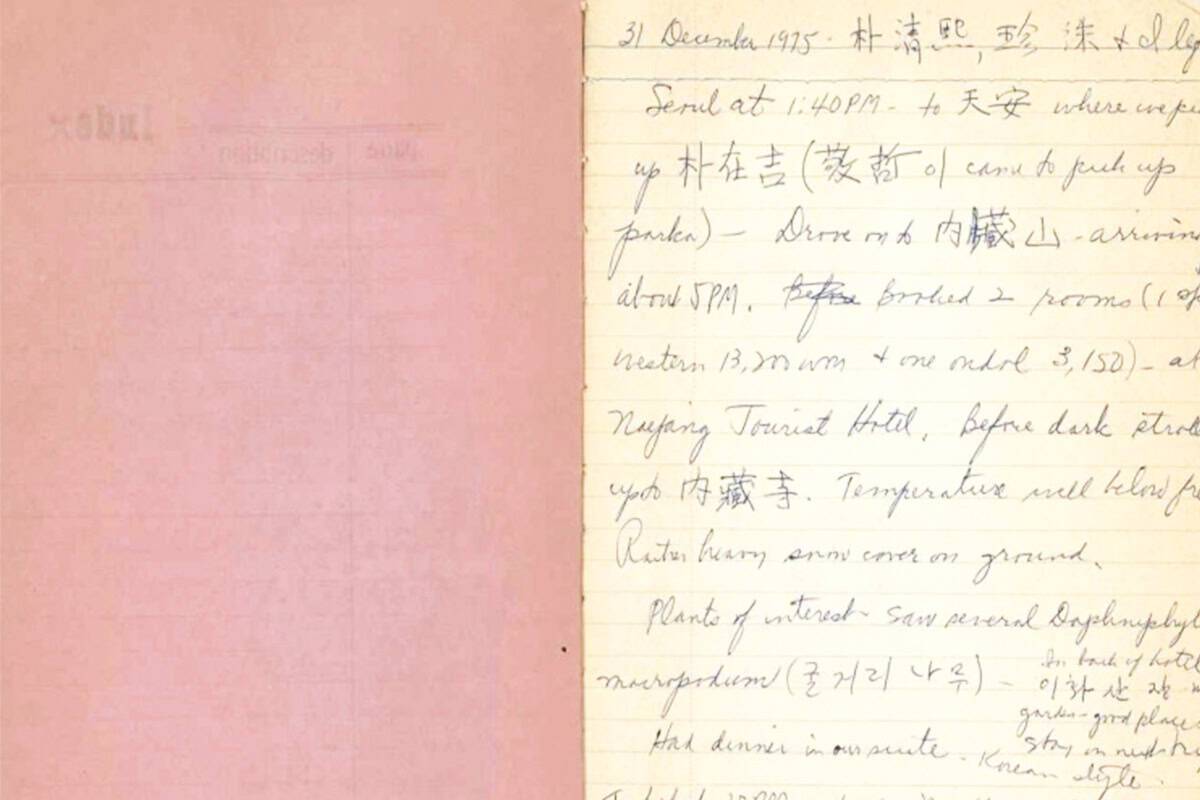 Index
page description
31 December 1975 - 朴清熙, 珍洙 & I
Seoul at 1:40PM - to 天安 where we
up 朴在吉 (敬哲이 came to pick up
parka) - Drove on to 內藏山 - arriving
about 5PM. Before Booked 2 rooms (1
western 13,200 won & one ondol 3,150) - at
Naejang Tourist Hotel. Before dark
up to 內藏寺. Temperature well below
Rather heavy snow cover on ground.
Plants of interest - Saw several
macropodum (굴거리 나무) -
In back of hotel
이화 산장
garden - good place
stay on next
Korean style.
Had dinner in our suite -